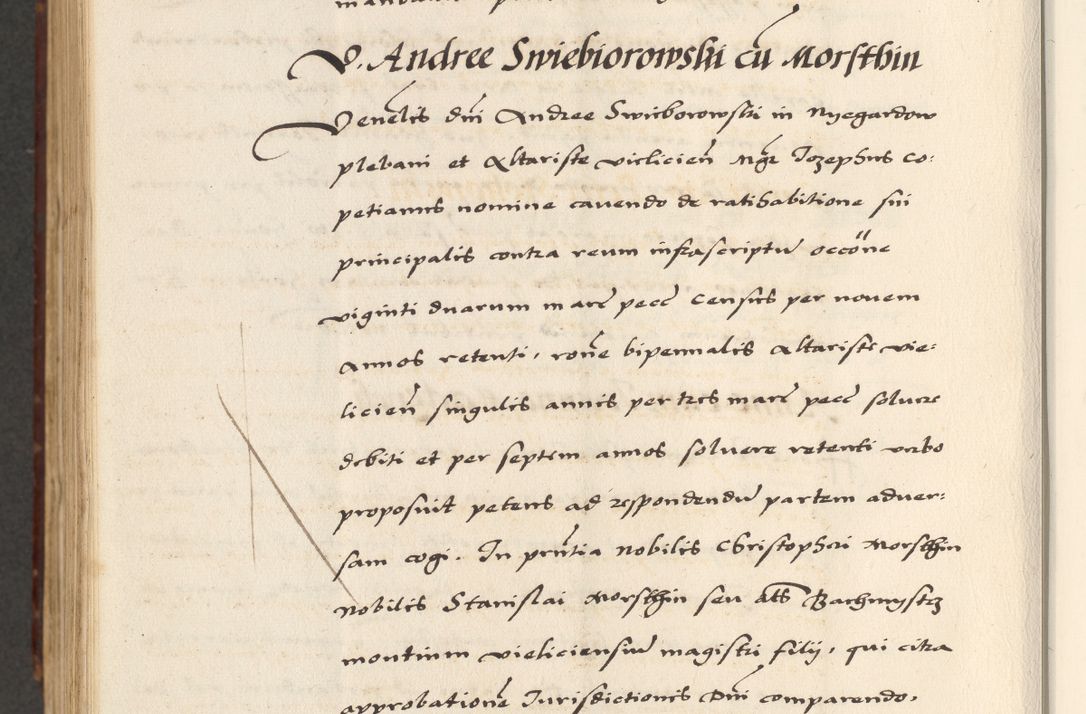 V. Andree Swiebiorowski cū Morsthin
Venelis dni Andree Swieborowski in Nyegardow
plebani et Altariste vieliciens Mgr Iozephus co:
petianus nomine cavendo de ratihabitione sui
principalis contra reum infrascriptū occōne
viginti duarum marc pecc census per novem
annos retenti, rōne bipennalis Altariste vie:
licien̄ singulis annis per tres marc pecc solvere
debiti et per septem annos solvere retenti verbo
proposuit petens ad respondendū partem adver:
sam cogi. In prntia Nobilis Christopheri Morsthin
Nobilis Stanislai Morsthin seu als Bachmystrz
montium vieliciensiū magistri filij, qui citra
approbationē Iurisdictionis Dni comparendo,